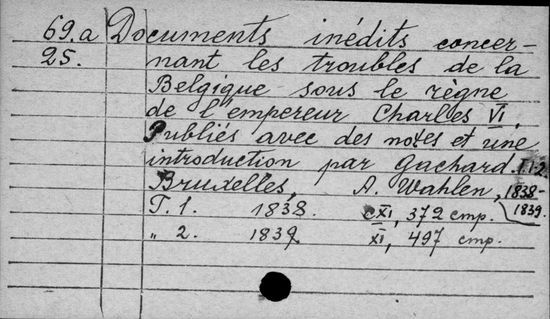 69.a Documents inédits concer-
25. nant les troubles de la
Belgique sous le règne
de l'empereur Charles VI.
Publiés avec des notes et une
introduction par Gachard. T.1-2.
Bruxelles, A. Wahlen, 1838-
1839.
T. 1. 1838. CXI, 372 стр.
" 2. 1839. XI, 497 стр.